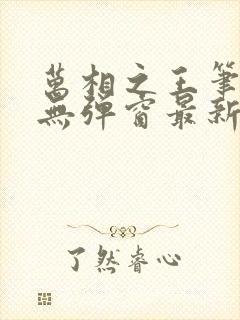 萬相之王筆
無彈窗最新
了然睿心